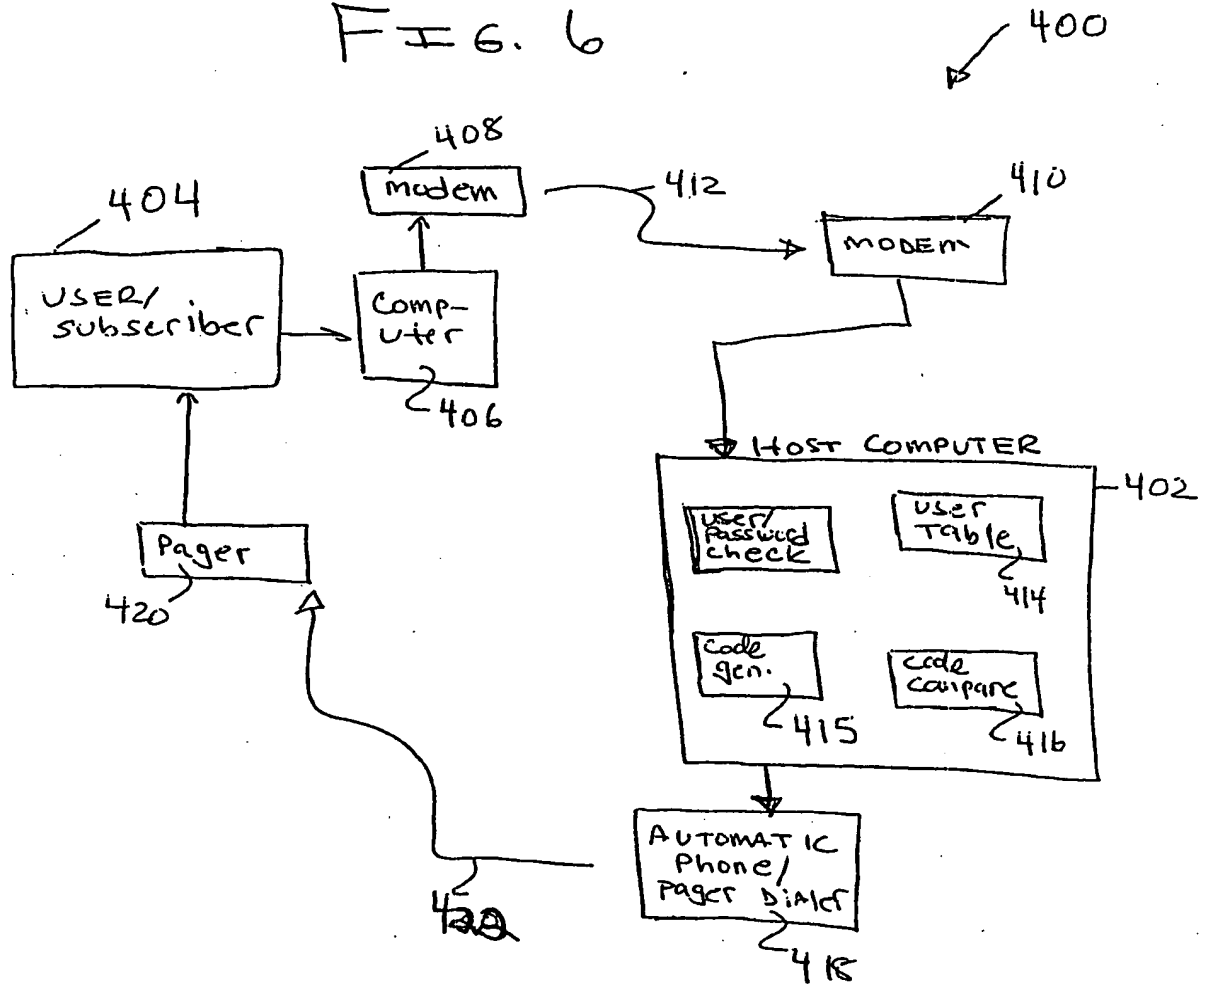 FIG. 6
400
408
modem
412
410
MODEM
404
USER/
subscriber
Comp-
uter
406
HOST COMPUTER
402
user/
Password
check
user
Table
414
Pager
420
code
gen.
415
code
compare
416
AUTOMATIC
Phone/
pager Dialer
418